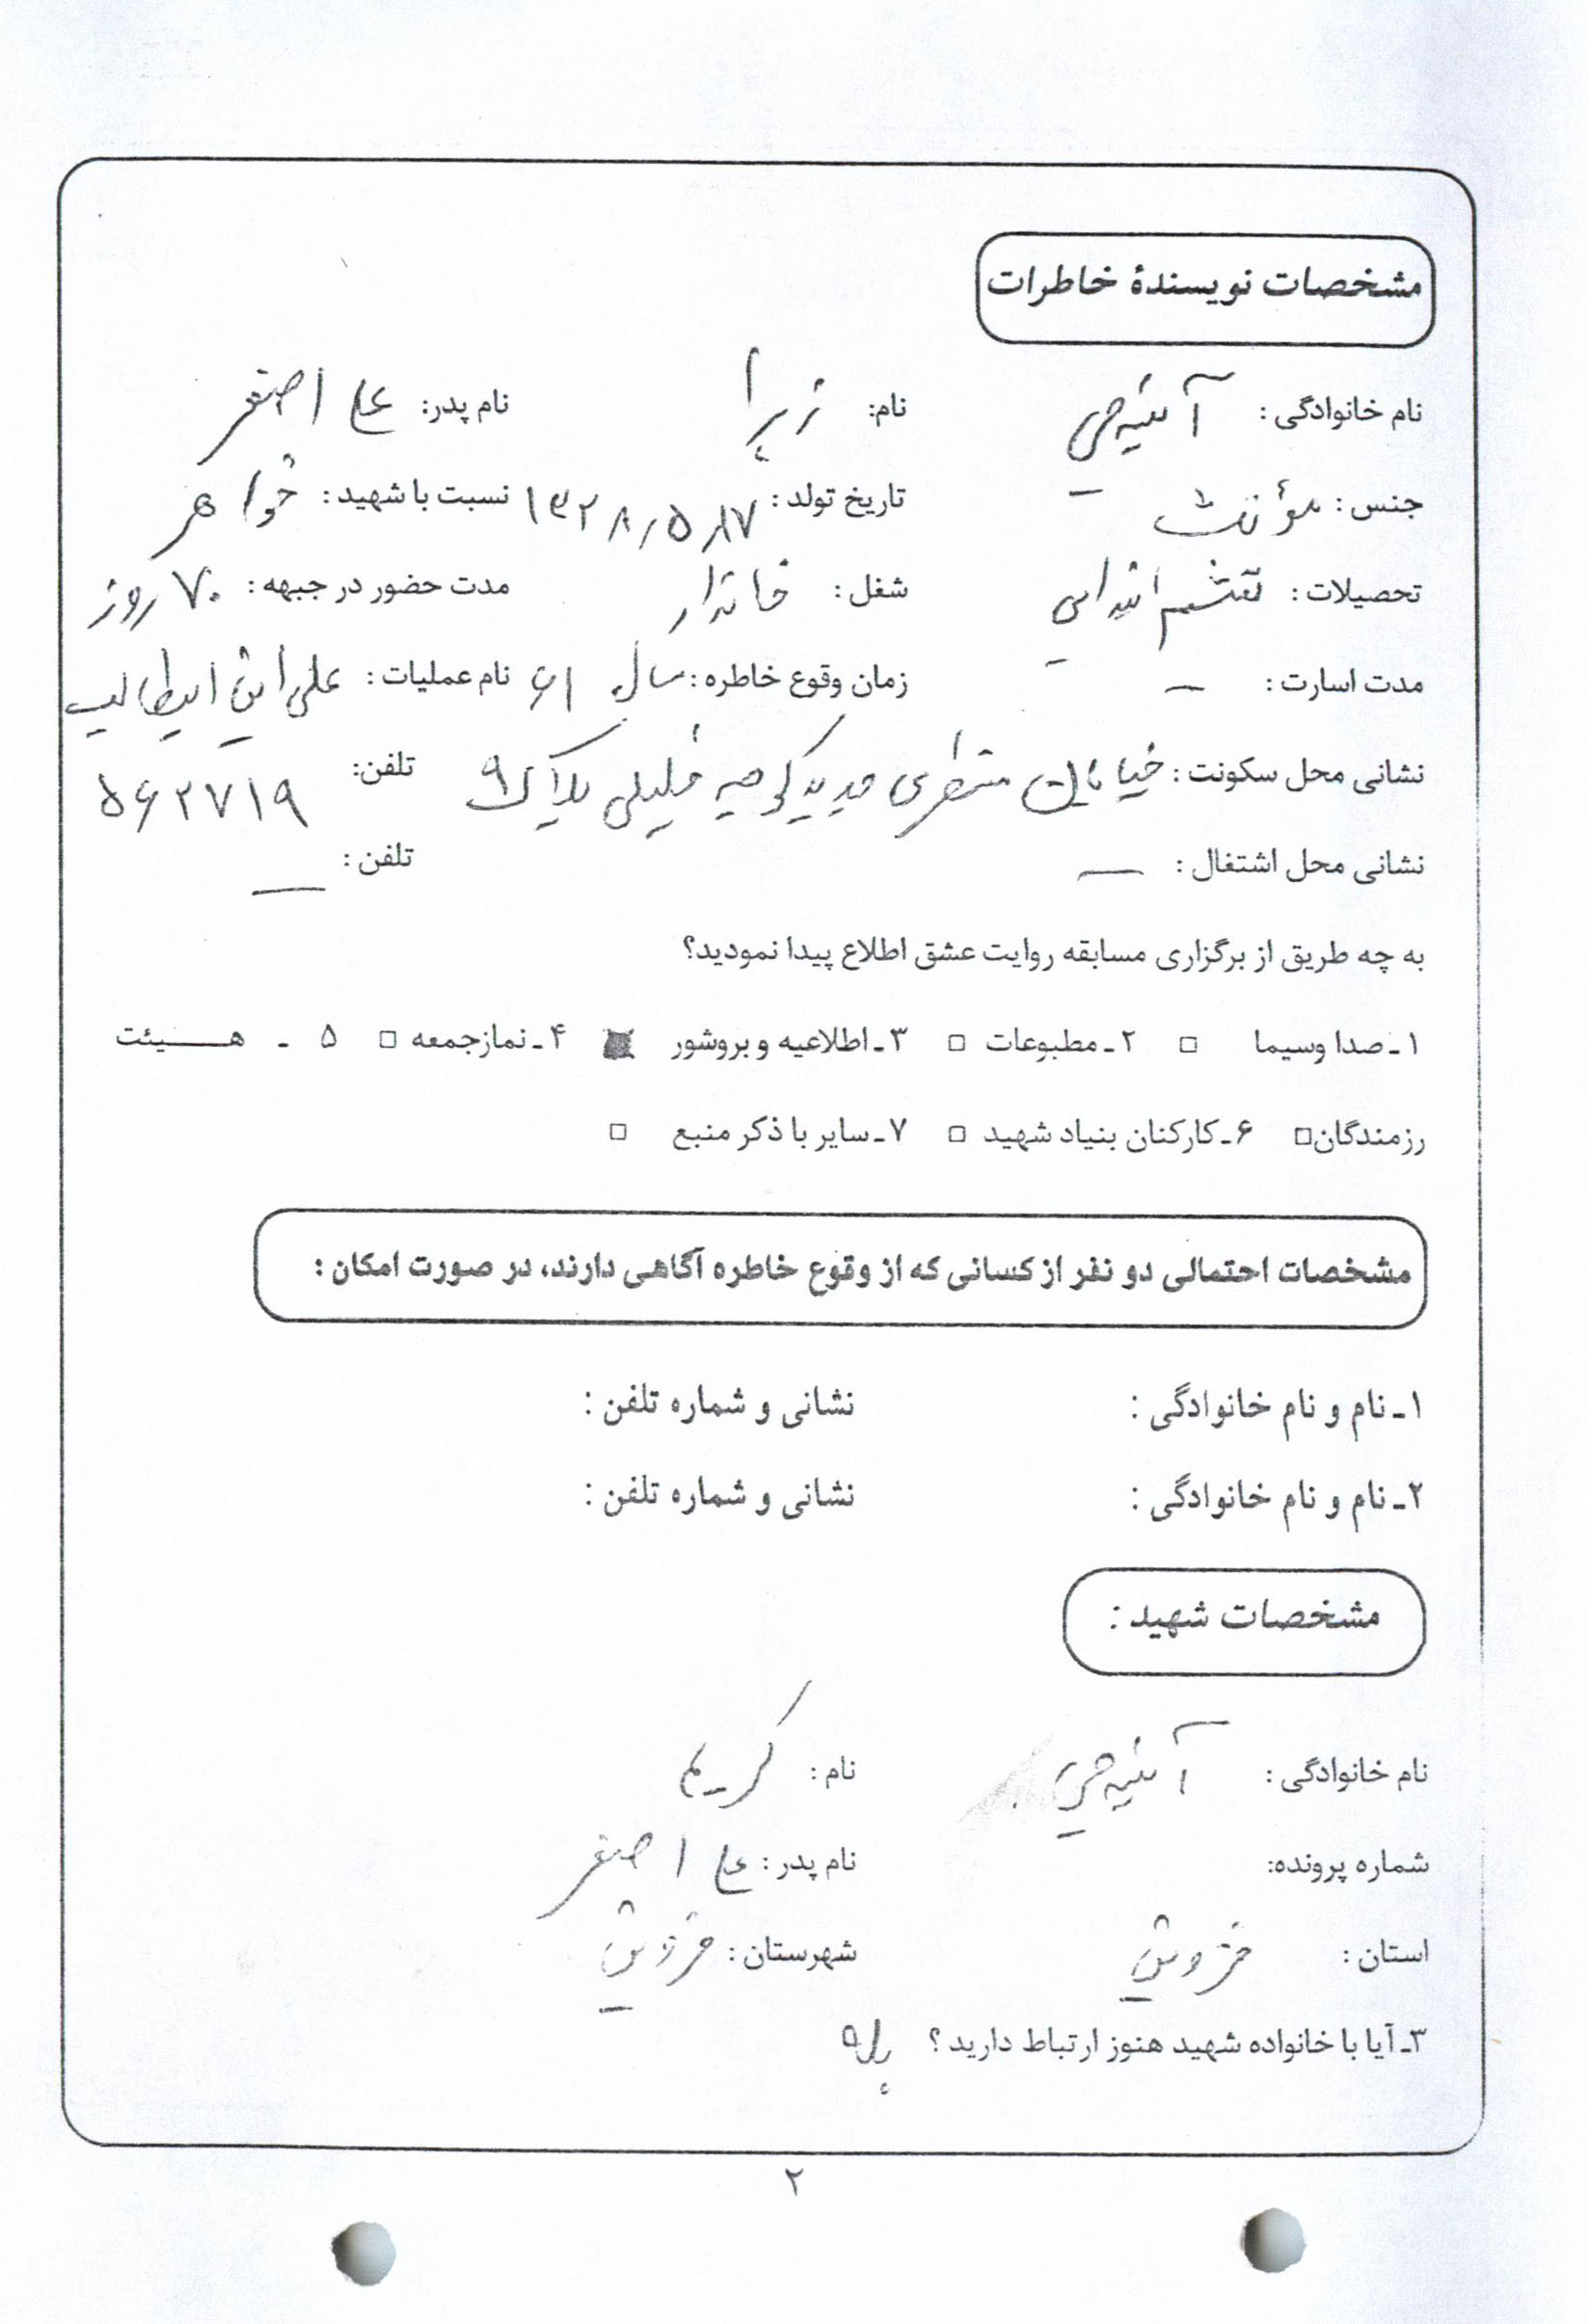 مشخصات نویسندهٔ خاطرات
نام خانوادگی: آئینه چی نام: زهرا نام پدر: علی اصغر
جنس: مؤنث تاریخ تولد: ۱۳۲۸/۵/۱۷ نسبت با شهید: خواهر
تحصیلات: ششم ابتدایی شغل: خانه‌دار مدت حضور در جبهه: ۷۰ روز
مدت اسارت: ـ زمان وقوع خاطره: سال ۶۱ نام عملیات: علی ابن ابیطالب
نشانی محل سکونت: خیابان منتظری جدید کوچه خلیلی پلاک ۹ تلفن: ۵۶۲۷۱۹
نشانی محل اشتغال: ـ تلفن: ـ
به چه طریق از برگزاری مسابقه روایت عشق اطلاع پیدا نمودید؟
۱ـ صدا وسیما □ ۲ـ مطبوعات □ ۳ـ اطلاعیه و بروشور ■ ۴ـ نمازجمعه □ ۵ ـ هـــیئت
رزمندگان□ ۶ـ کارکنان بنیاد شهید □ ۷ـ سایر با ذکر منبع □
مشخصات احتمالی دو نفر از کسانی که از وقوع خاطره آگاهی دارند، در صورت امکان:
۱ـ نام و نام خانوادگی: نشانی و شماره تلفن:
۲ـ نام و نام خانوادگی: نشانی و شماره تلفن:
مشخصات شهید:
نام خانوادگی: آئینه چی نام: کریم
شماره پرونده: نام پدر: علی اصغر
استان: قزوین شهرستان: قزوین
۳ـ آیا با خانواده شهید هنوز ارتباط دارید؟ بله
۲